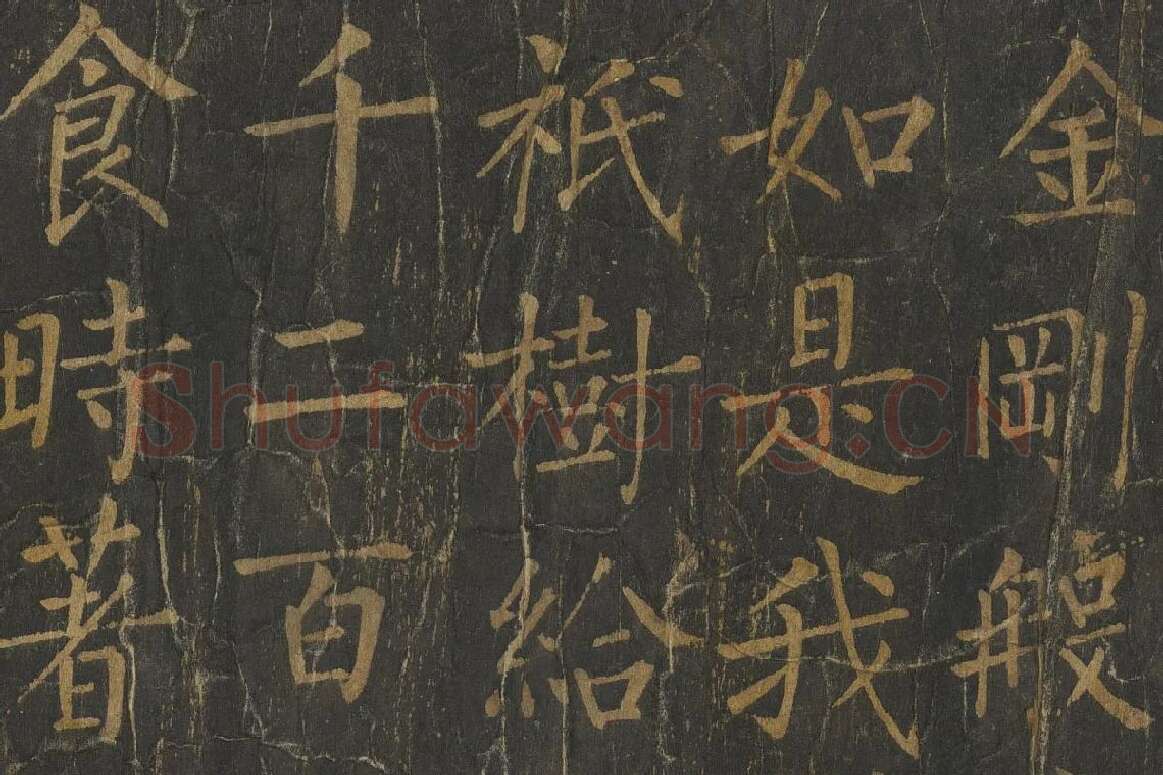 金剛般
如是我
祇樹給
千二百
食時著
Shufawang.CN